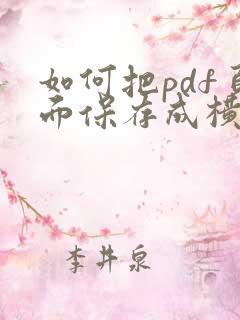 如何把pdf
而保存成横
李井泉